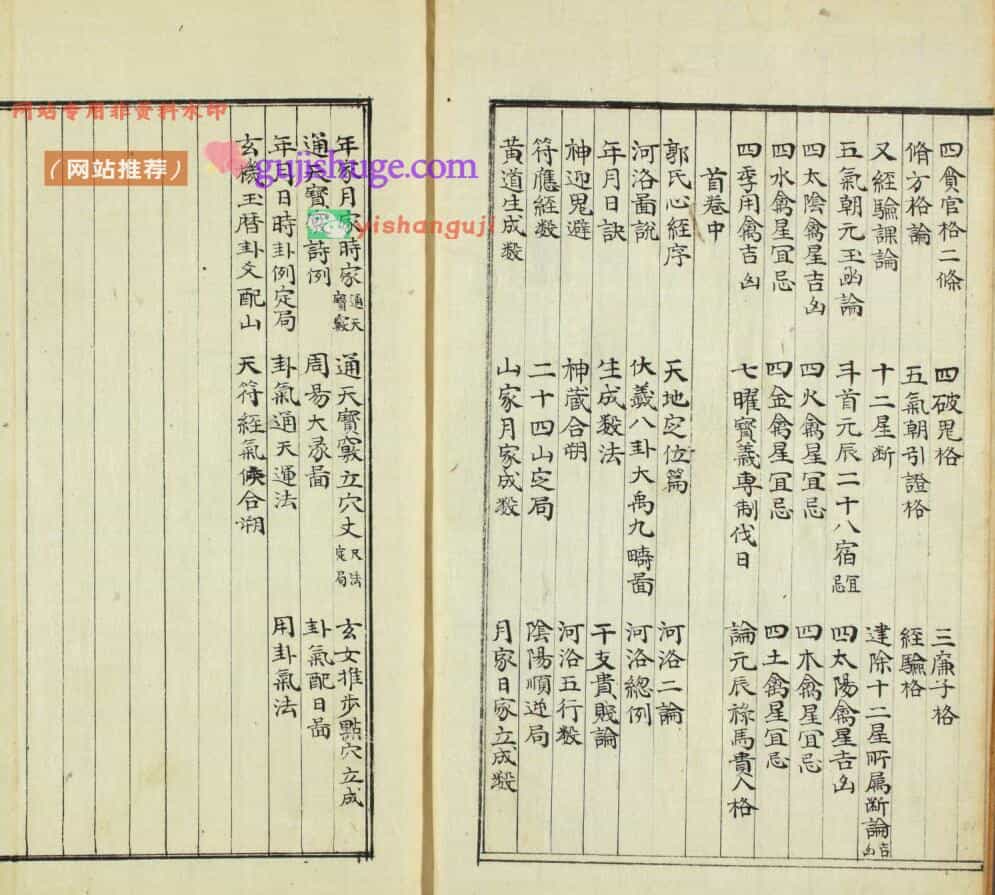 四貪官格二條　四破鬼格　三廉子格
脩方格論　五氣朝引證格　經驗格
又經驗課論　十二星断　建除十二星所属断論吉凶
五氣朝元玉凾論　斗首元辰二十八宿宜忌　四太陽禽星吉凶
四太陰禽星吉凶　四火禽星宜忌　四木禽星宜忌
四水禽星宜忌　四金禽星宜忌　四土禽星宜忌
四季用禽吉凶　七曜寳義專制伐日　論元辰祿馬貴人格
首卷中
郭氏心經序　天地定位篇　河洛二論
河洛啚說　伏羲八卦大禹九疇啚　河洛總例
年月日訣　生成数法　干支貴賤論
神迎鬼避　神藏合朔　河洛五行数
符應經数　二十四山定局　陰陽順逆局
黃道生成数　山家月家成数　月家日家立成数
年家月家時家通天寳竅　通天寳竅立穴丈尺法定局　玄女推步點穴立成
通天寳竅詩例　周易大象啚　卦氣配日啚
年月日時卦例定局　卦氣通天運法　用卦氣法
玄機玉暦卦爻配山　天符經氣候合朔
网站专用非资料水印
（网站推荐）
gujishuge.com
yishanguji